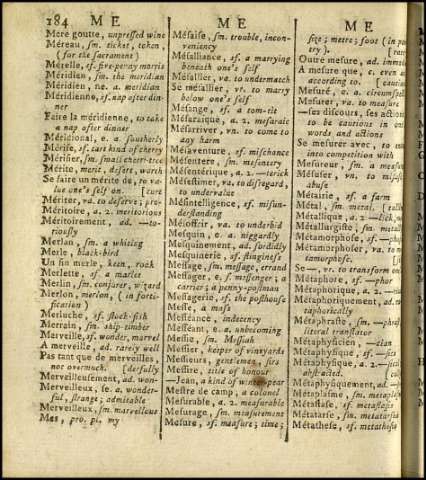 184 M E
M E
M E
Mere goutte, unpressed wine
Méreau, sm. ticket, token,
(for the sacrament)
Merelle, sf. five-penny morris
Méridien, sm. the meridian
Méridien, ne. a. meridian
Méridienne, sf. nap after dinner
ner
Faire la méridienne, to take
a nap after dinner
Méridional, e. a. southerly
Mérise, sf. tart kind of cherry
Mérisier, sm. small cherr-tree
Mérite, merit, desert, worth
Se faire un mérite de, to va-
lue one's self on. [ture
Mériter, va. to deserve; pro-
Méritoire, a. 2. meritorious
Méritoirement, ad. —to-
riously
Merlan, sm. a whiting
Merle, black-bird
Un fin merle, keen, rook
Merlette, sf. a marlee
Merlin, sm. conjurer, wizard
Merlon, merlon, (in forti-
fication)
Merluche, sf. stock-fish
Merrain, sm. ship-timber
Merveille, sf. wonder, marvel
A merveille, ad. rarely well
Pas tant que de merveilles,
not overmuch. [derfully
Merveilleusement, ad. won-
Merveilleux, se. a. wonder-
ful, strange; admirable
Merveilleux, sm. marvellous
Mes, pro. pl. my
Mésaise, sm. trouble, incon-
veniency
Mésalliance, sf. a marrying
beneath one's self
Mésallier, va. to undermatch
Se mésallier, vr. to marry
below one's self
Mesange, sf. a tom-tit
Mésaraïque, a. 2. mesaraic
Mésarriver, vn. to come to
any harm
Mésaventure, sf. mischance
Mésentere, sm. mesentery
Mésentérique, a. 2. —terick
Mésestimer, va. to disregard,
to undervalue
Mésintelligence, sf. misun-
derstanding
Mésoffrir, va. to underbid
Mesquin, e. a. niggardly
Mesquinement, ad. sordidly
Mesquinerie, sf. stinginess
Message, sm. message, errand
Messager, e. s. messenger; a
carrier; a penny-postman
Messagerie, sf. the posthouse
Messe, a mass
Messéance, indecency
Messéant, e. a. unbecoming
Messie, sm. Messiah
Messier, keeper of vineyards
Messieurs, gentlemen, sirs
Messire, title of honour
—Jean, a kind of winter pear
Mestre de camp, a colonel
Mesurable, a. 2. measurable
Mesurage, sm. measurement
Mesure, sf. measure; time;
size; metre; foot (in po
try) [re
Outre mesure, ad. immode
A mesure que, c. even as
according to. [can
Mesuré, e. a. circumspect
Mesurer, va. to measure
—ses discours, ses actions
to be cautious in one
words and actions
Se mesurer avec, to
into competition with
Mesureur, sm. a measu
Mésuser, vn. to misus
abuse
Métairie, sf. a farm
Métal, sm. metal. [tallic
Métallique, a. 2. —lick
Métallurgiste, sm. —allurg
Métamorphose, sf. —pho
Métamorphoser, va. to me
tamorphose. [ph
Se—, vr. to transform on
Métaphore, sf. —phor
Métaphorique, a. 2. —ica
Métaphoriquement, ad.
taphorically
Métaphraste, sm. —phrast
literal translater
Métaphysicien, —cian
Métaphysique, sf. —sics
Métaphysique, a. 2. —ical
abstracted. [cally
Métaphysiquement, ad.
Métaplasme, sm. metaplasm
Métastase, sf. metastasis
Métatarse, sm. metatarsus
Métathese, sf. metathesis